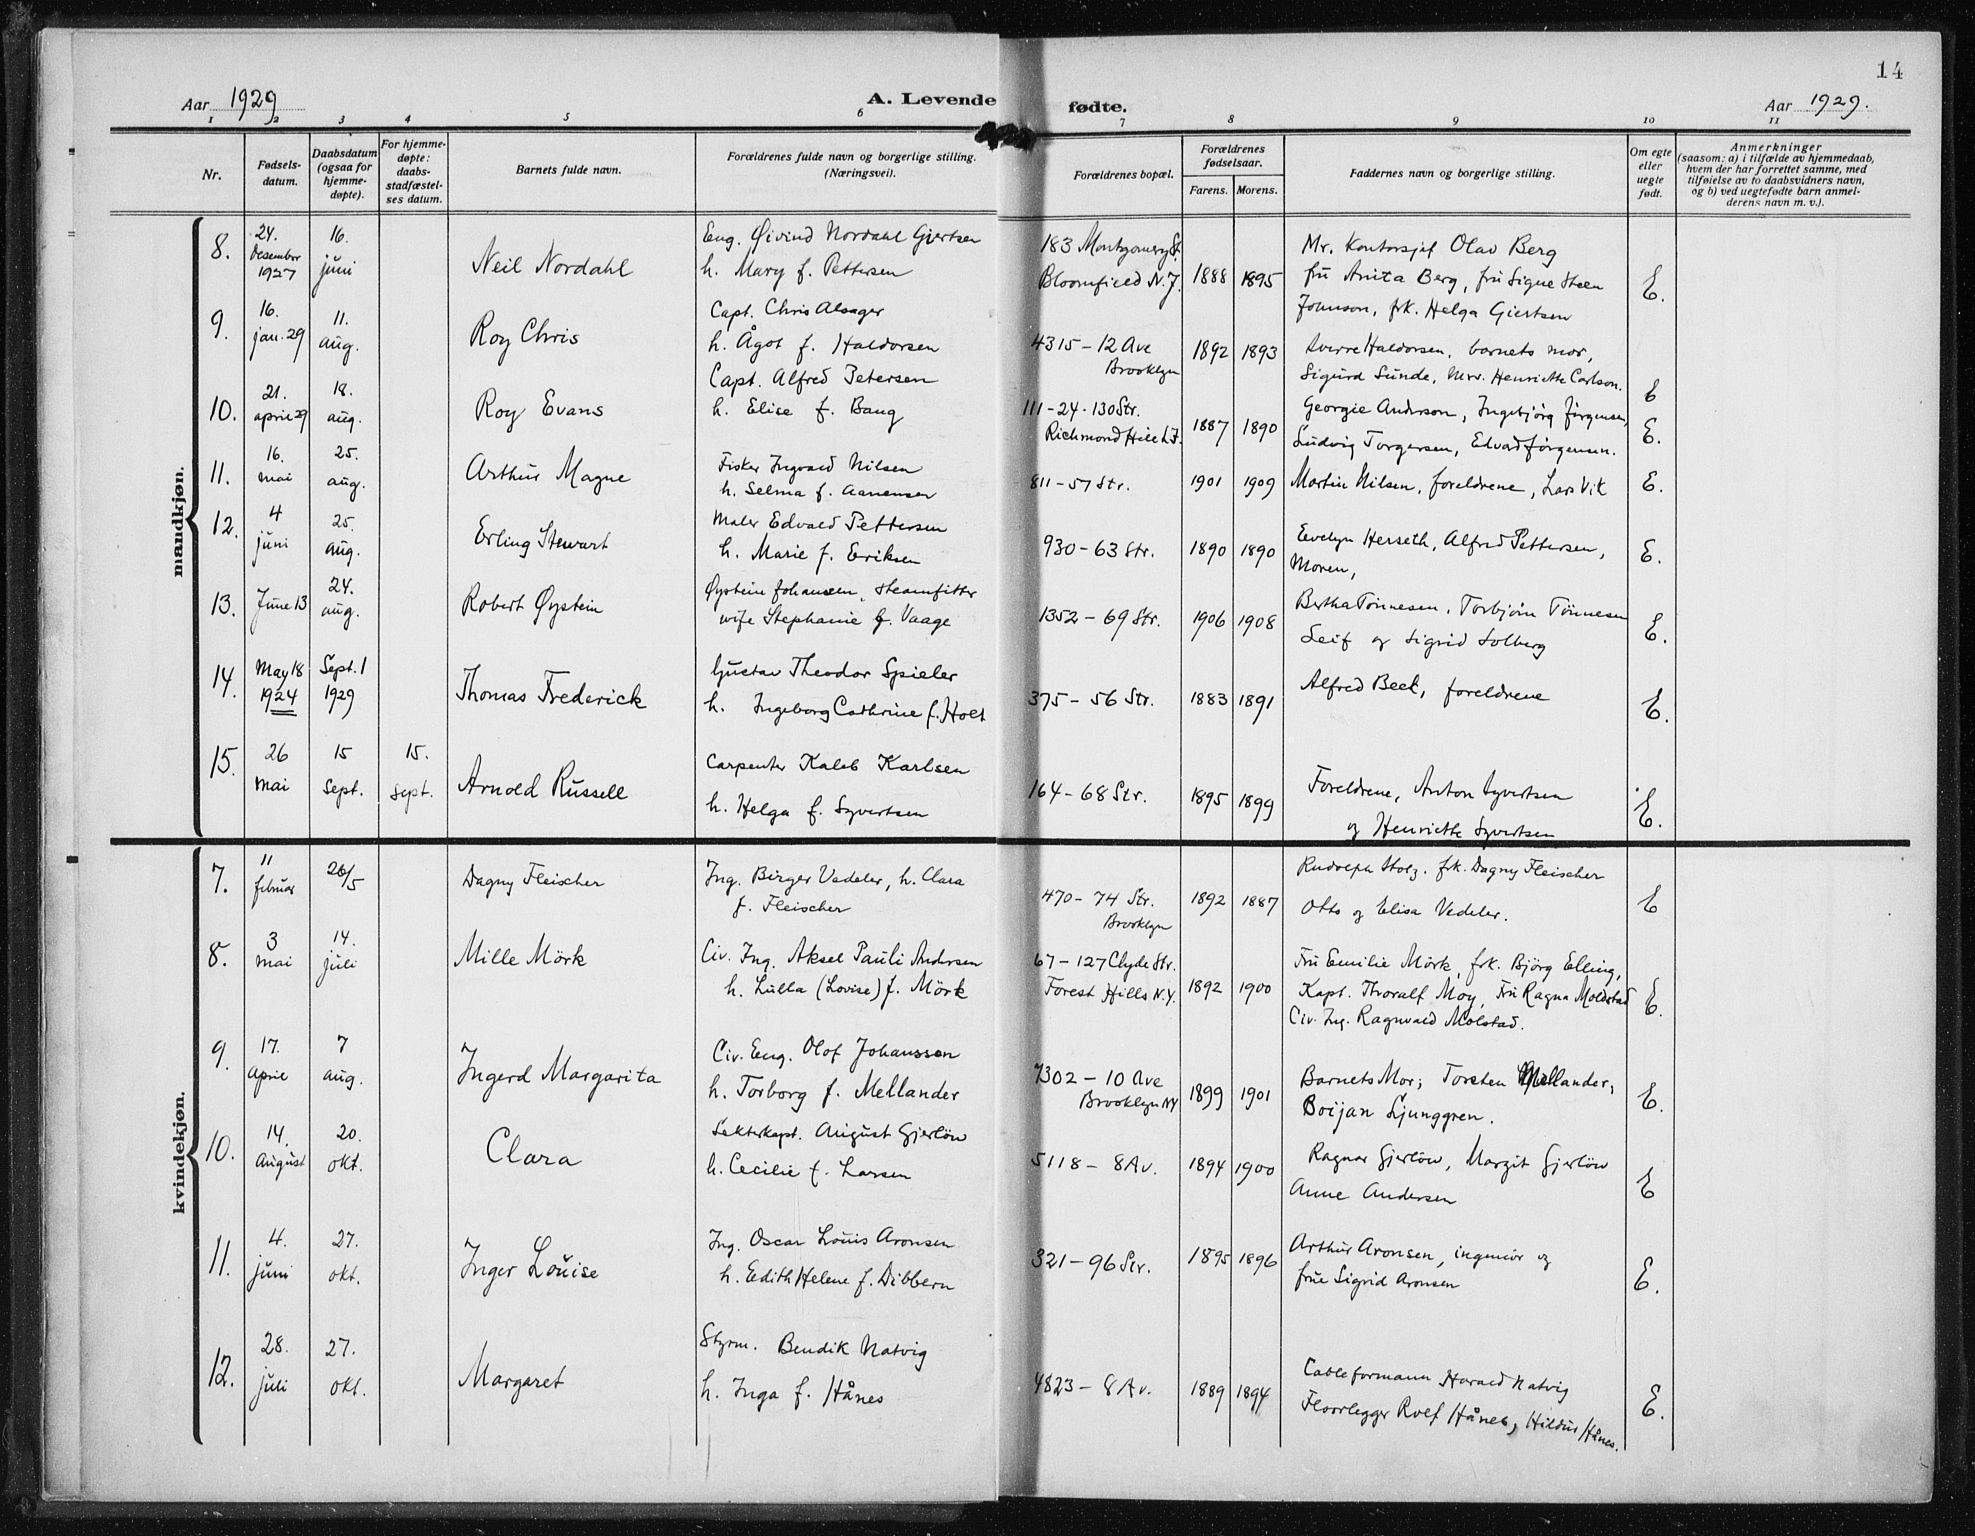 14
Aar 1929
A. Levende fødte.
Aar 1929.
1 2 3 4 5 6 7 8 9 10 11
Nr.
Fødsels-
datum.
Daabsdatum
(ogsaa for
hjemme-
døpte).
For hjemme-
døpte:
daabs-
stadfæstel-
ses datum.
Barnets fulde navn.
Forældrenes fulde navn og borgerlige stilling.
(Næringsvei).
Forældrenes bopæl.
Forældrenes
fødselsaar.
Farens. Morens.
Faddernes navn og borgerlige stilling.
Om egte
eller
uegte
født.
Anmerkninger
(saasom: a) i tilfælde av hjemmedaab,
hvem der har forrettet samme, med
tilføielse av to daabsvidners navn,
og b) ved uegtefødte barn anmel-
derens navn m. v.).
mandkjøn.
8.
24.
Desember
1927
16.
juni
Neil Nordahl
Eng. Øivind Nordahl Gjertsen
h. Mary f. Pettersen
183 Montgomery St.
Bloomfield N.J.
1888 1895
Mr. Kontorsjef Olav Berg
fru Anita Berg, fru Signe Steen
Johnson, frk. Helga Giertsen
E.
9.
16.
jan. 29
11.
aug.
Roy Chris
Capt. Chris Alsager
h. Ågot f. Haldorsen
4315 - 12 Ave
Brooklyn
1892 1893
Sverre Haldorsen, barnets mor,
Sigurd Sunde, Mrs. Henriette Carlson.
E
10.
21.
april 29
18.
aug.
Roy Evans
Capt. Alfred Petersen
h. Elise f. Bang
111-24-130 Str.
Richmond Hill L.I.
1887 1890
Georgie Anderson, Ingebjørg Jørgensen,
Ludvig Torgersen, Edvad Jörgensen.
E.
11.
16.
mai
25.
aug.
Arthur Magne
Fisker Ingvald Nilsen
h. Selma f. Aanensen
811 - 57 Str.
1901 1909
Martin Nilsen, foreldrene, Lars Vik
E.
12.
4
juni
25.
aug.
Erling Stewart
Maler Edvald Pettersen
h. Marie f. Eriksen
930 - 63 Str.
1890 1890
Evelyn Herseth, Alfred Pettersen,
Moren,
E.
13.
June 13
24.
aug.
Robert Øystein
Øystein Johansen, steamfitter
wife Stephanie f. Vaage
1352 - 69 Str.
1906 1908
Bertha Tönnesen, Torbjörn Tönnesen
Leif og Sigrid Solberg
E.
14.
May 18
1924
Sept. 1
1929
Thomas Frederick
Gustav Theodor Spieler
h. Ingeborg Cathrine f. Holt
375 - 56 Str.
1883 1891
Alfred Beck, foreldrene
E.
15.
26
mai
15
sept.
15.
sept.
Arnold Russell
Carpenter Kaleb Karlsen
h. Helga f. Syvertsen
164 - 68 Str.
1895 1899
Foreldrene, Anton Syvertsen
og Henriette Syvertsen
E.
kvindekjøn.
7.
11
februar
26/5
Dagny Fleischer
Ing. Birger Vedeler, h. Clara
f. Fleischer
470 - 74 Str.
Brooklyn
1892 1887
Rudolph Holz. frk. Dagny Fleischer
Otto og Elisa Vedeler.
E
8.
3
mai
14.
juli
Mille Mörk
Civ. Ing. Aksel Pauli Andersen
h. Lulla (Lovise) f. Mörk
67 - 127 Clyde Str.
Forest Hills N.Y.
1892 1900
Fru Emilie Mörk, frk. Björg Elling,
Kapt. Thoralf Moy, Fru Ragna Moldstad
Civ. Ing. Ragnvald Molstad.
E.
9.
17.
April
7
aug.
Ingerd Margarita
Civ. Eng. Olof Johansson
h. Torborg f. Mellander
7302 - 10 Ave
Brooklyn NY
1899 1901
Barnets Mor; Torsten Mellander;
Boijan Ljunggren.
E.
10.
14.
August
20.
okt.
Clara
Lekterkapt. August Gjerlöw
h. Cecilie f. Larsen
5118 - 8 Av.
1894 1900
Ragnar Gjerlöw, Margit Gjerlöw
Anne Andersen
E
11.
4.
juni
27.
okt.
Inger Louise
Ing. Oscar Louis Aronsen
h. Edith Helene f. Dibbern
321 - 96 Str.
1895 1896
Arthur Aronsen, ingeniör og
frue Sigrid Aronsen
E.
12.
28.
juli
27.
okt.
Margaret
Styrm. Bendik Natvig
h. Inga f. Hånes
4823 - 8 Av.
1889 1894
Cableformann Harald Natvig
Floorlegger Rolf Hånes, Hildur Hånes.
E.